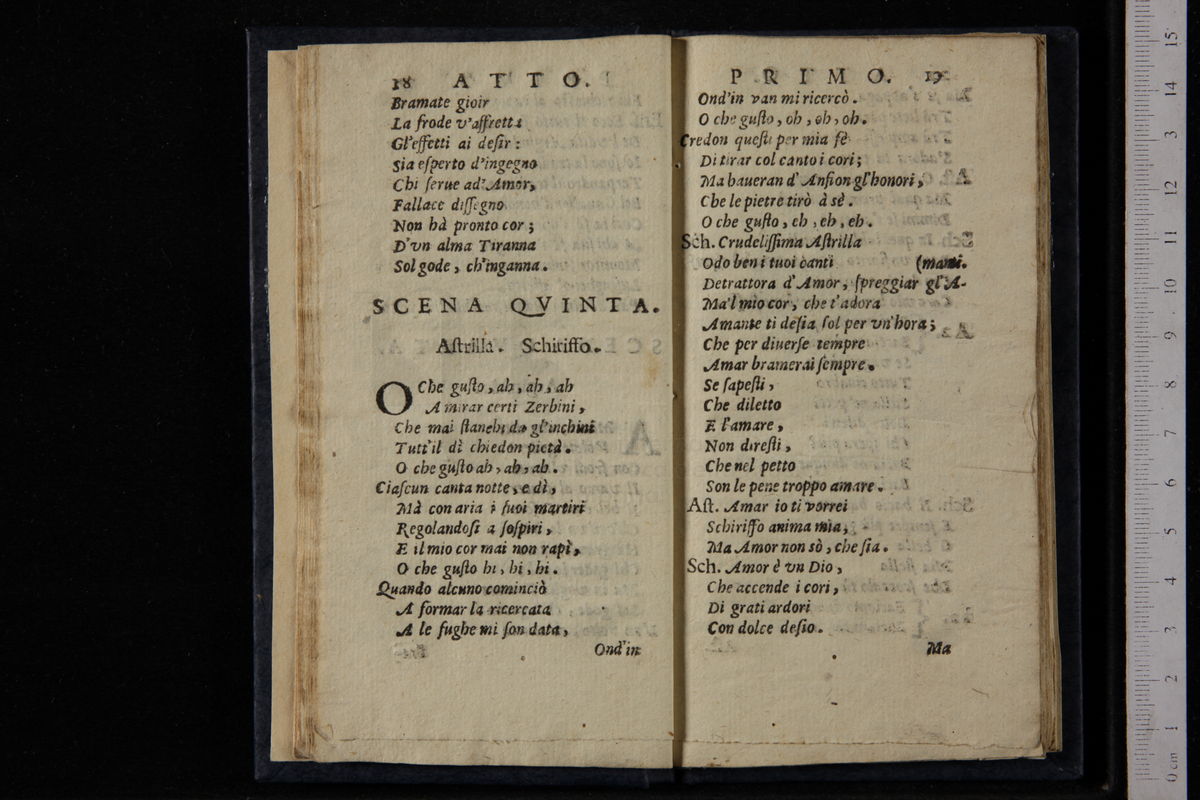 18 ATTO.
Bramate gioir
La frode v'affretta
Gl'effetti ai desir:
Sia esperto d'ingegno
Chi serue ad'Amor,
Fallace dissegno
Non hà pronto cor;
D'vn alma Tiranna
Sol gode, ch'inganna.
SCENA QVINTA.
Astrilla. Schiriffo.
O Che gusto, ah, ah, ah
A mirar certi Zerbini,
Che mai stanchi da gl'inchini
Tutt'il dì chiedon pietà.
O che gusto ah, ah, ah.
Ciascun canta notte, e dì,
Mà con aria i suoi martiri
Regolandosi a sospiri,
E il mio cor mai non rapì,
O che gusto hi, hi, hi.
Quando alcuno cominciò
A formar la ricercata
A le fughe mi son data,
Ond'in
PRIMO. 19
Ond'in van mi ricercò.
O che gusto, oh, oh, oh.
Credon questi per mia fè
Di tirar col canto i cori;
Ma haueran d'Anfion gl'honori,
Che le pietre tirò à sè.
O che gusto, eh, eh, eh.
Sch. Crudelissima Astrilla
Odo ben i tuoi canti (manti.
Detrattora d'Amor, spreggiar gl'A-
Ma'l mio cor, che t'adora
Amante ti desia sol per vn'hora;
Che per diuerse tempre
Amar bramerai sempre.
Se sapesti,
Che diletto
E l'amare,
Non diresti,
Che nel petto
Son le pene troppo amare.
Ast. Amar io ti vorrei
Schiriffo anima mia,
Ma Amor non sò, che sia.
Sch. Amor è vn Dio,
Che accende i cori,
Di grati ardori
Con dolce desio.
Ma
15
14
13
12
11
10
9
8
7
6
5
4
3
2
1
0 cm